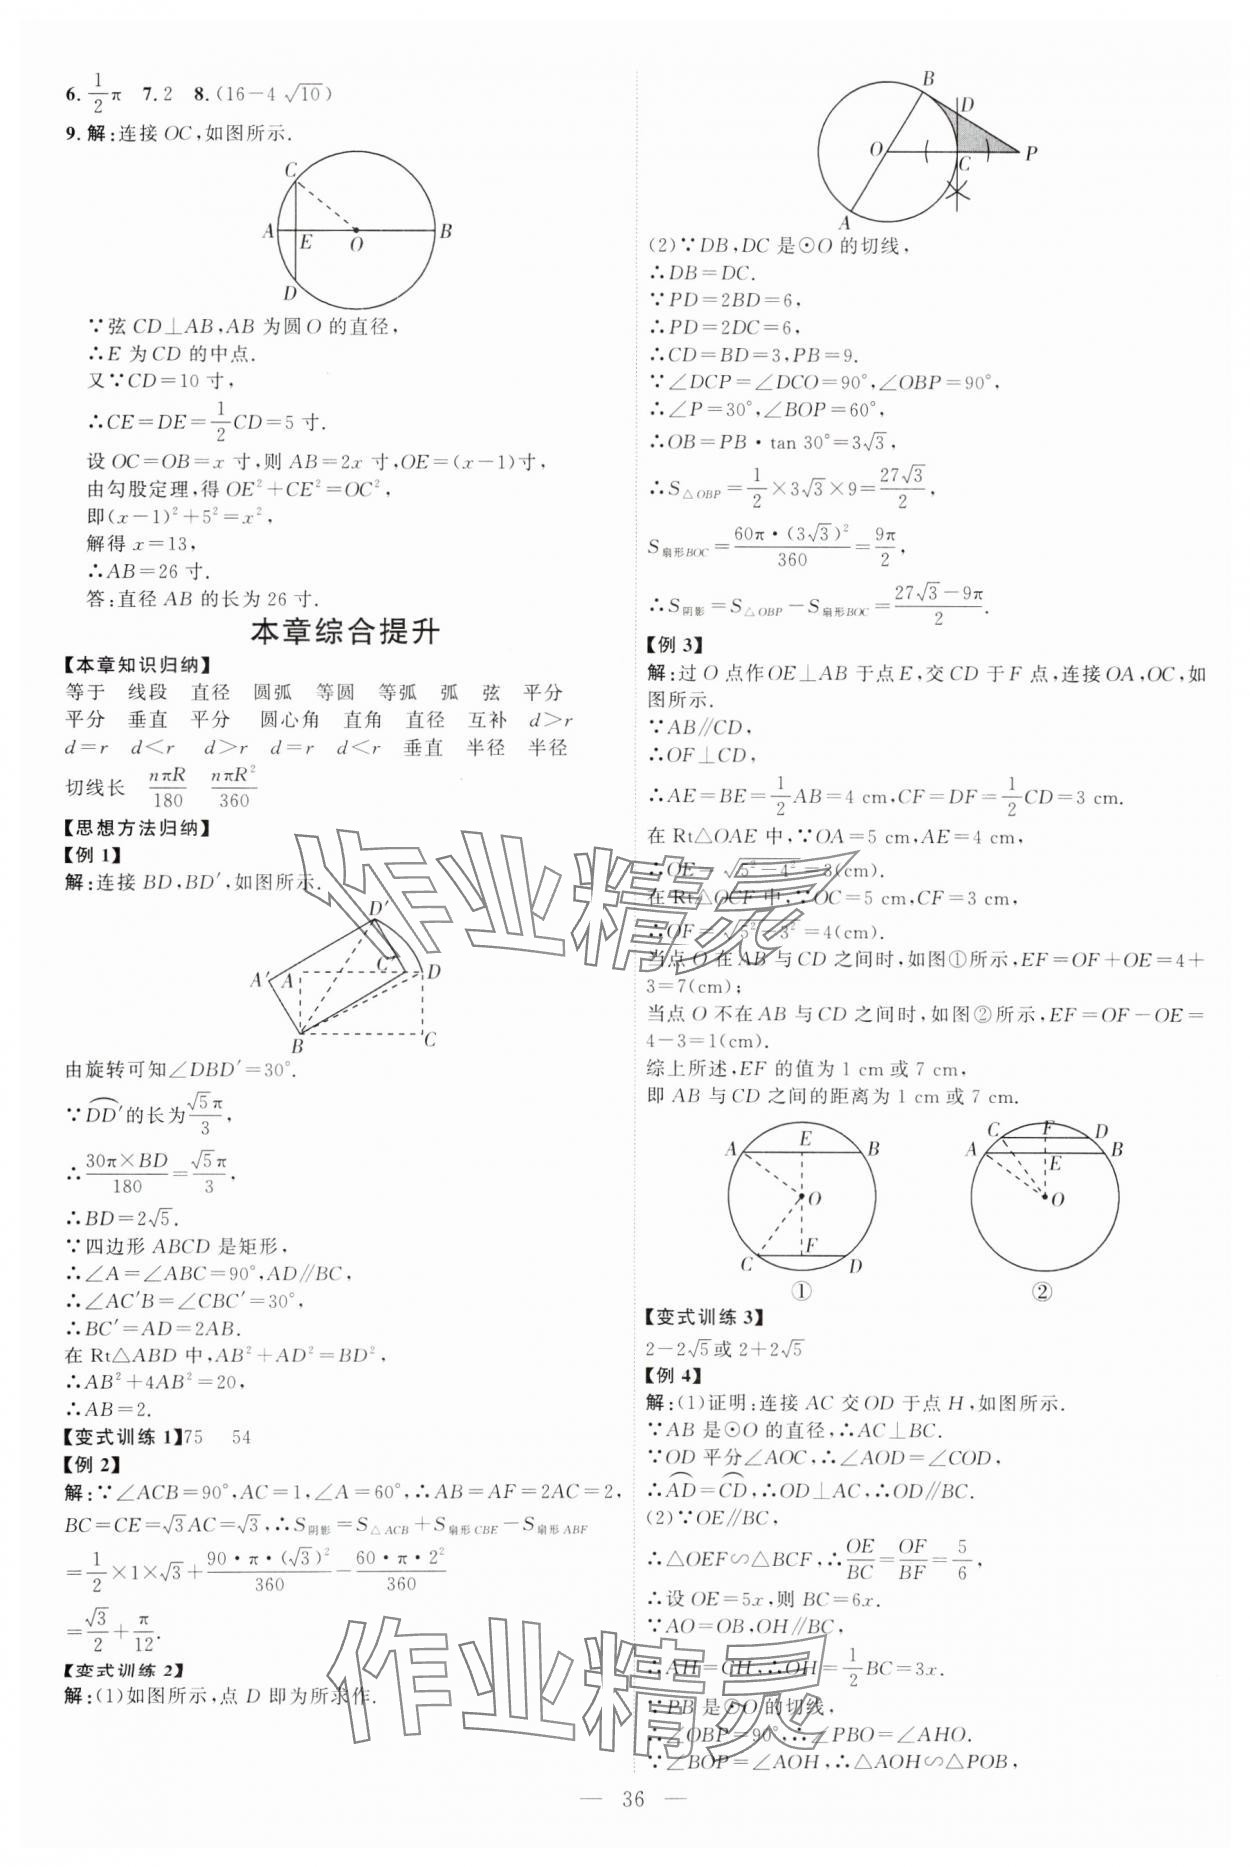 6. \frac{1}{2}π  7.2  8.(16−4√10)
9.解:连接 OC,如图所示.
C
A E O B
D
∵弦 CD⊥AB,AB 为圆 O 的直径,
∴E 为 CD 的中点.
又∵CD=10 寸,
∴CE=DE=\frac{1}{2}CD=5 寸.
设 OC=OB=x 寸,则 AB=2x 寸,OE=(x−1)寸,
由勾股定理,得 OE²+CE²=OC²,
即(x−1)²+5²=x²,
解得 x=13,
∴AB=26 寸.
答:直径 AB 的长为 26 寸.
本章综合提升
【本章知识归纳】
等于 线段 直径 圆弧 等圆 等弧 弧 弦 平分
平分 垂直 平分 圆心角 直角 直径 互补 d>r
d=r d<r d>r d=r d<r 垂直 半径 半径
切线长 \frac{nπR}{180} \frac{nπR²}{360}
【思想方法归纳】
【例 1】
解:连接 BD,BD′,如图所示.
D′
A′ A C′ D
B C
由旋转可知∠DBD′=30°.
∵\overset{⌢}{DD′}的长为\frac{√5π}{3},
∴\frac{30π×BD}{180}=\frac{√5π}{3},
∴BD=2√5.
∵四边形 ABCD 是矩形,
∴∠A=∠ABC=90°,AD∥BC,
∴∠AC′B=∠CBC′=30°,
∴BC′=AD=2AB.
在 Rt△ABD 中,AB²+AD²=BD²,
∴AB²+4AB²=20,
∴AB=2.
【变式训练 1】75  54
【例 2】
解:∵∠ACB=90°,AC=1,∠A=60°,∴AB=AF=2AC=2,
BC=CE=√3AC=√3,∴S阴影=S△ACB+S扇形CBE−S扇形ABF
=\frac{1}{2}×1×√3+\frac{90·π·(√3)²}{360}−\frac{60·π·2²}{360}
=\frac{√3}{2}+\frac{π}{12}.
【变式训练 2】
解:(1)如图所示,点 D 即为所求作.
B
D
O C P
A
(2)∵DB,DC 是⊙O 的切线,
∴DB=DC.
∵PD=2BD=6,
∴PD=2DC=6,
∴CD=BD=3,PB=9.
∵∠DCP=∠DCO=90°,∠OBP=90°,
∴∠P=30°,∠BOP=60°,
∴OB=PB·tan 30°=3√3,
∴S△OBP=\frac{1}{2}×3√3×9=\frac{27√3}{2},
S扇形BOC=\frac{60π·(3√3)²}{360}=\frac{9π}{2},
∴S阴影=S△OBP−S扇形BOC=\frac{27√3−9π}{2}.
【例 3】
解:过 O 点作 OE⊥AB 于点 E,交 CD 于 F 点,连接 OA,OC,如
图所示.
∵AB∥CD,
∴OF⊥CD,
∴AE=BE=\frac{1}{2}AB=4 cm,CF=DF=\frac{1}{2}CD=3 cm.
在 Rt△OAE 中,∵OA=5 cm,AE=4 cm,
∴OE=√5²−4²=3(cm).
在 Rt△OCF 中,∵OC=5 cm,CF=3 cm,
∴OF=√5²−3²=4(cm).
当点 O 在 AB 与 CD 之间时,如图①所示,EF=OF+OE=4+
3=7(cm);
当点 O 不在 AB 与 CD 之间时,如图②所示,EF=OF−OE=
4−3=1(cm).
综上所述,EF 的值为 1 cm 或 7 cm.
即 AB 与 CD 之间的距离为 1 cm 或 7 cm.
A E B
O
C F D
①
C F D
A E B
O
②
【变式训练 3】
2−2√5或 2+2√5
【例 4】
解:(1)证明:连接 AC 交 OD 于点 H,如图所示.
∵AB 是⊙O 的直径,∴AC⊥BC.
∵OD 平分∠AOC,∴∠AOD=∠COD,
∴\overset{⌢}{AD}=\overset{⌢}{CD},∴OD⊥AC,∴OD∥BC.
(2)∵OE∥BC,
∴△OEF∽△BCF,∴\frac{OE}{BC}=\frac{OF}{BF}=\frac{5}{6},
∴设 OE=5x,则 BC=6x.
∵AO=OB,OH∥BC,
∴AH=CH,∴OH=\frac{1}{2}BC=3x.
∵PB 是⊙O 的切线,
∴∠OBP=90°,∴∠PBO=∠AHO.
∵∠BOP=∠AOH,∴△AOH∽△POB,
— 36 —
作业精灵
作业精灵